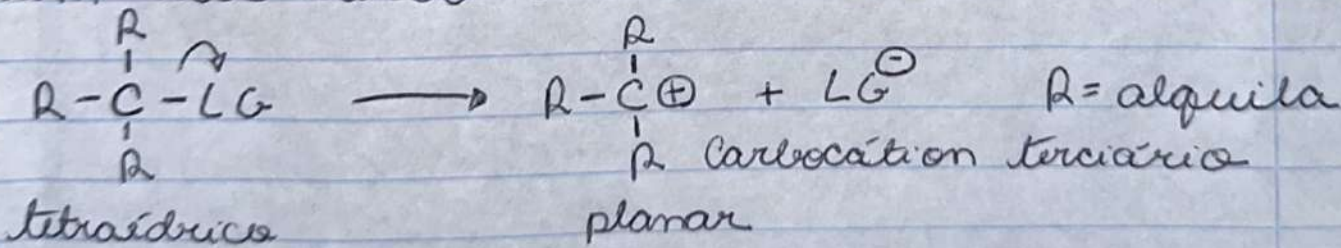 R R
R-C-LG → R-C⊕ + LG⊖ R = alquila
R R Carbocátion terciário
tetraídrico planar